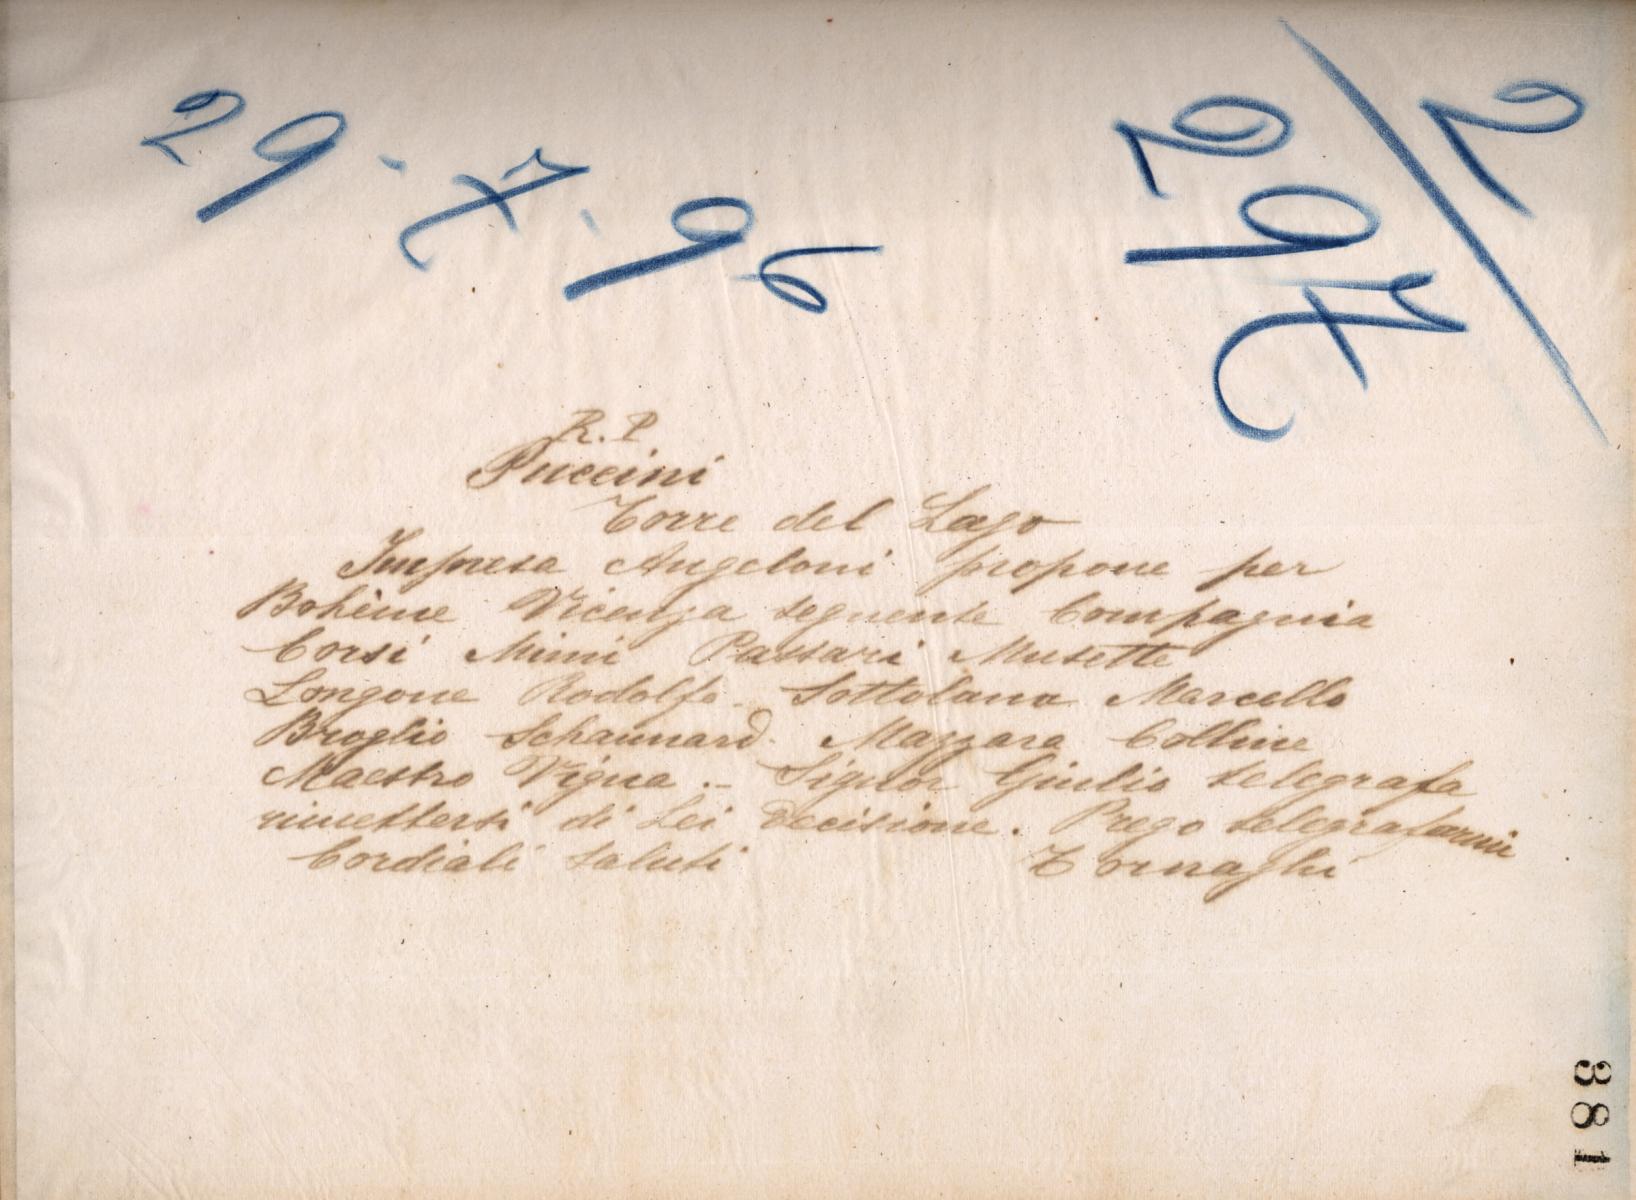 29.7.96
2/297
R.P.
Puccini
Torre del Lago
Impresa Angeloni propone per
Bohème Vicenza seguente Compagnia
Corsi Mimi Passari Musette
Longone Rodolfo - Sottolana Marcello
Broglio Schaunard - Mazzara Colline
Maestro Vigna .- Signor Giulio telegrafa
rimettersi di Lei decisione. Prego telegrafarmi
Cordiali saluti Tornaghi
381